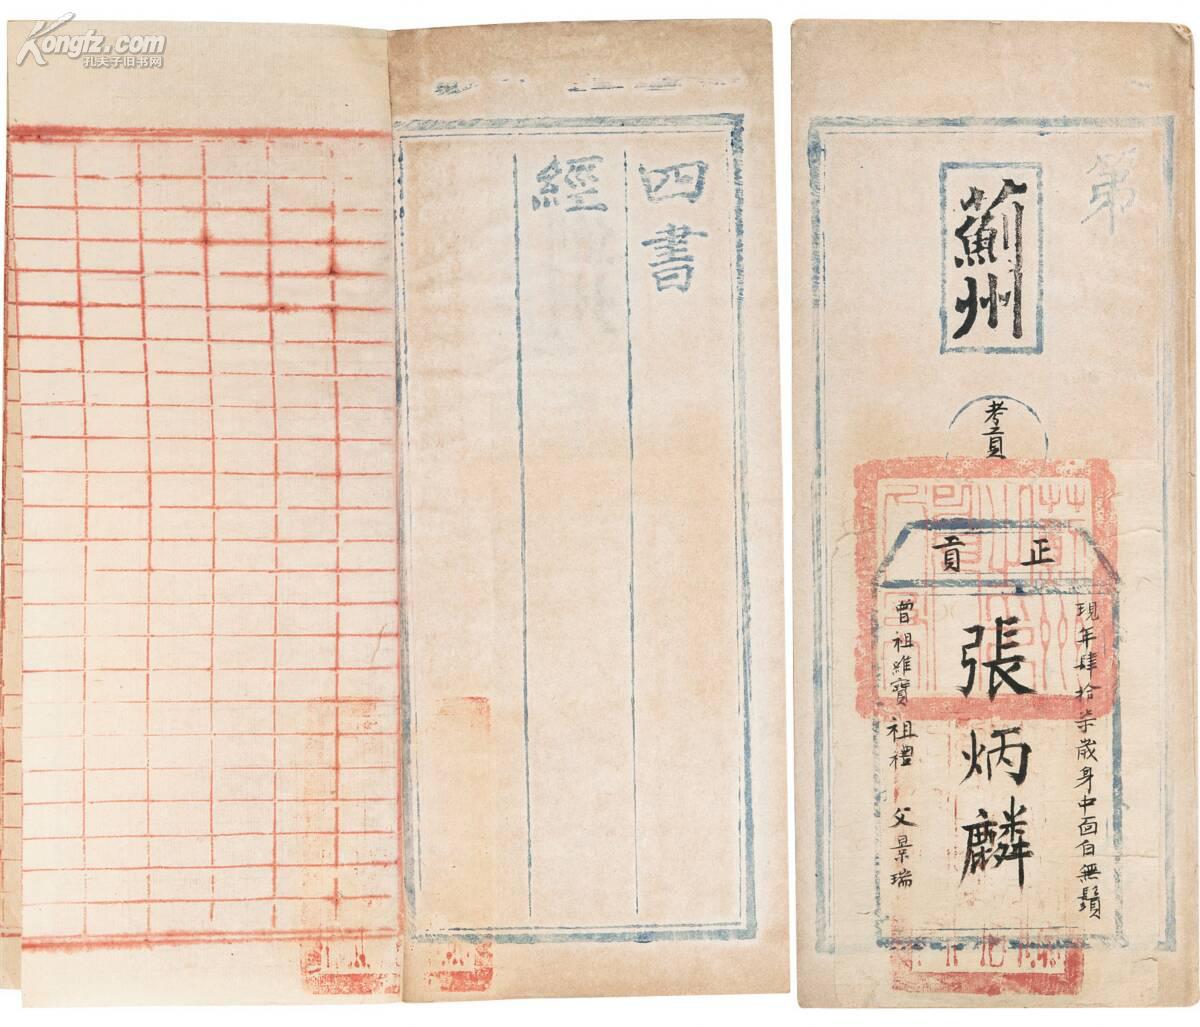 Kongfz.com
孔夫子旧书网
四書
經
第
薊州
考貢
正貢
現年肆拾柒歲身中面白無鬚
張炳麟
曾祖維寶 祖禮 父景瑞